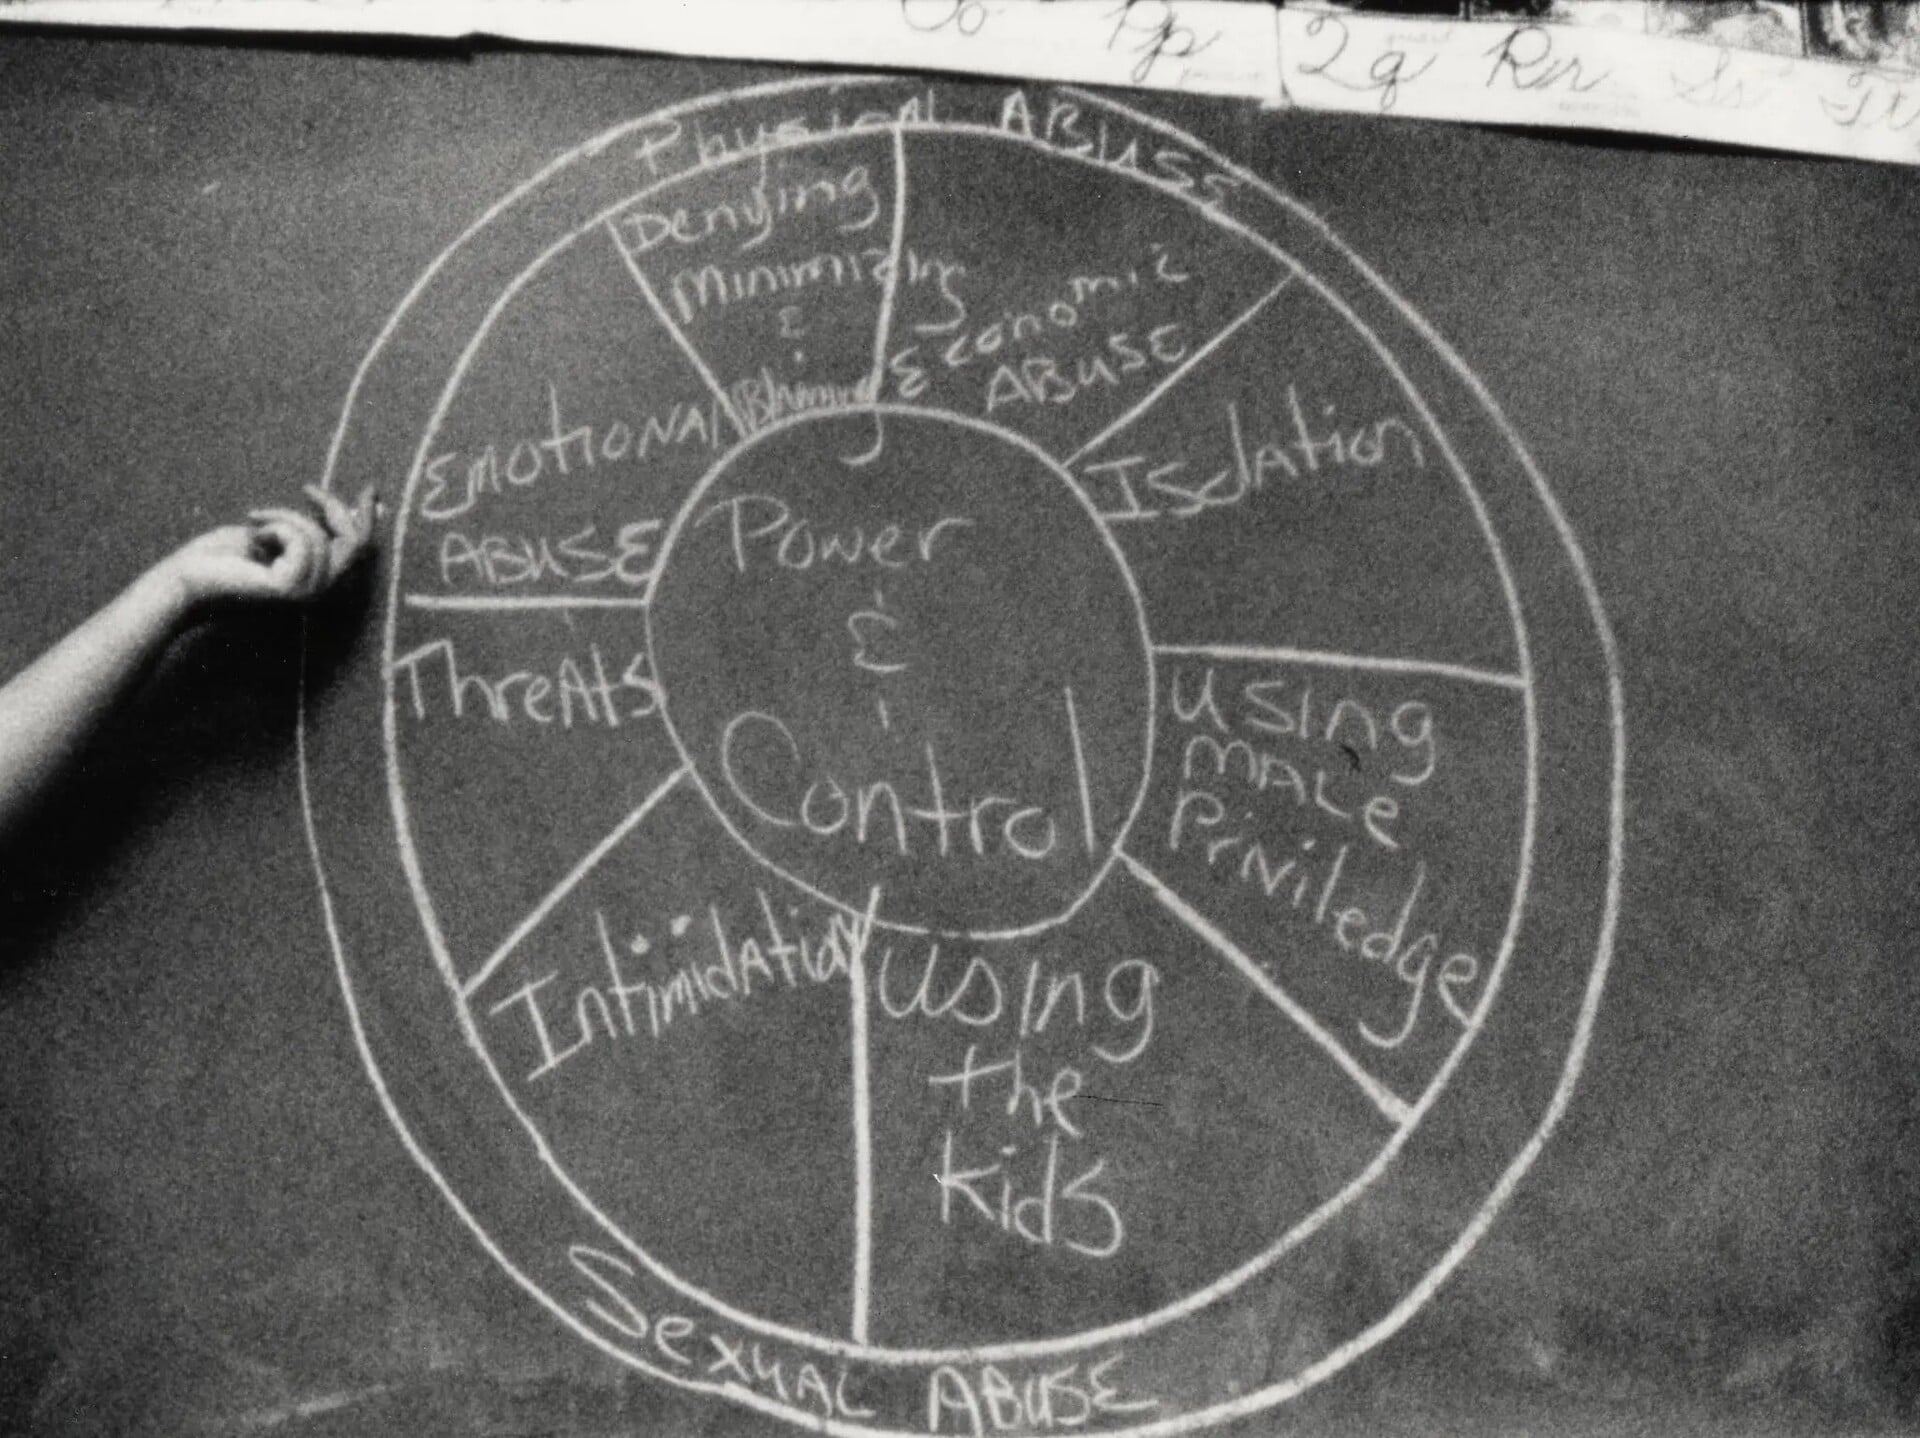 Oo Pp Qq Rr Ss Tt
Physical ABUSE
Denying
Minimizing
&
Blaming
Economic
ABUSE
Isolation
Using
MALe
Priviledge
Using
the
kids
Intimidation
Threats
EMOTIONAl
ABUSE
Power
&
Control
Sexual ABUSE